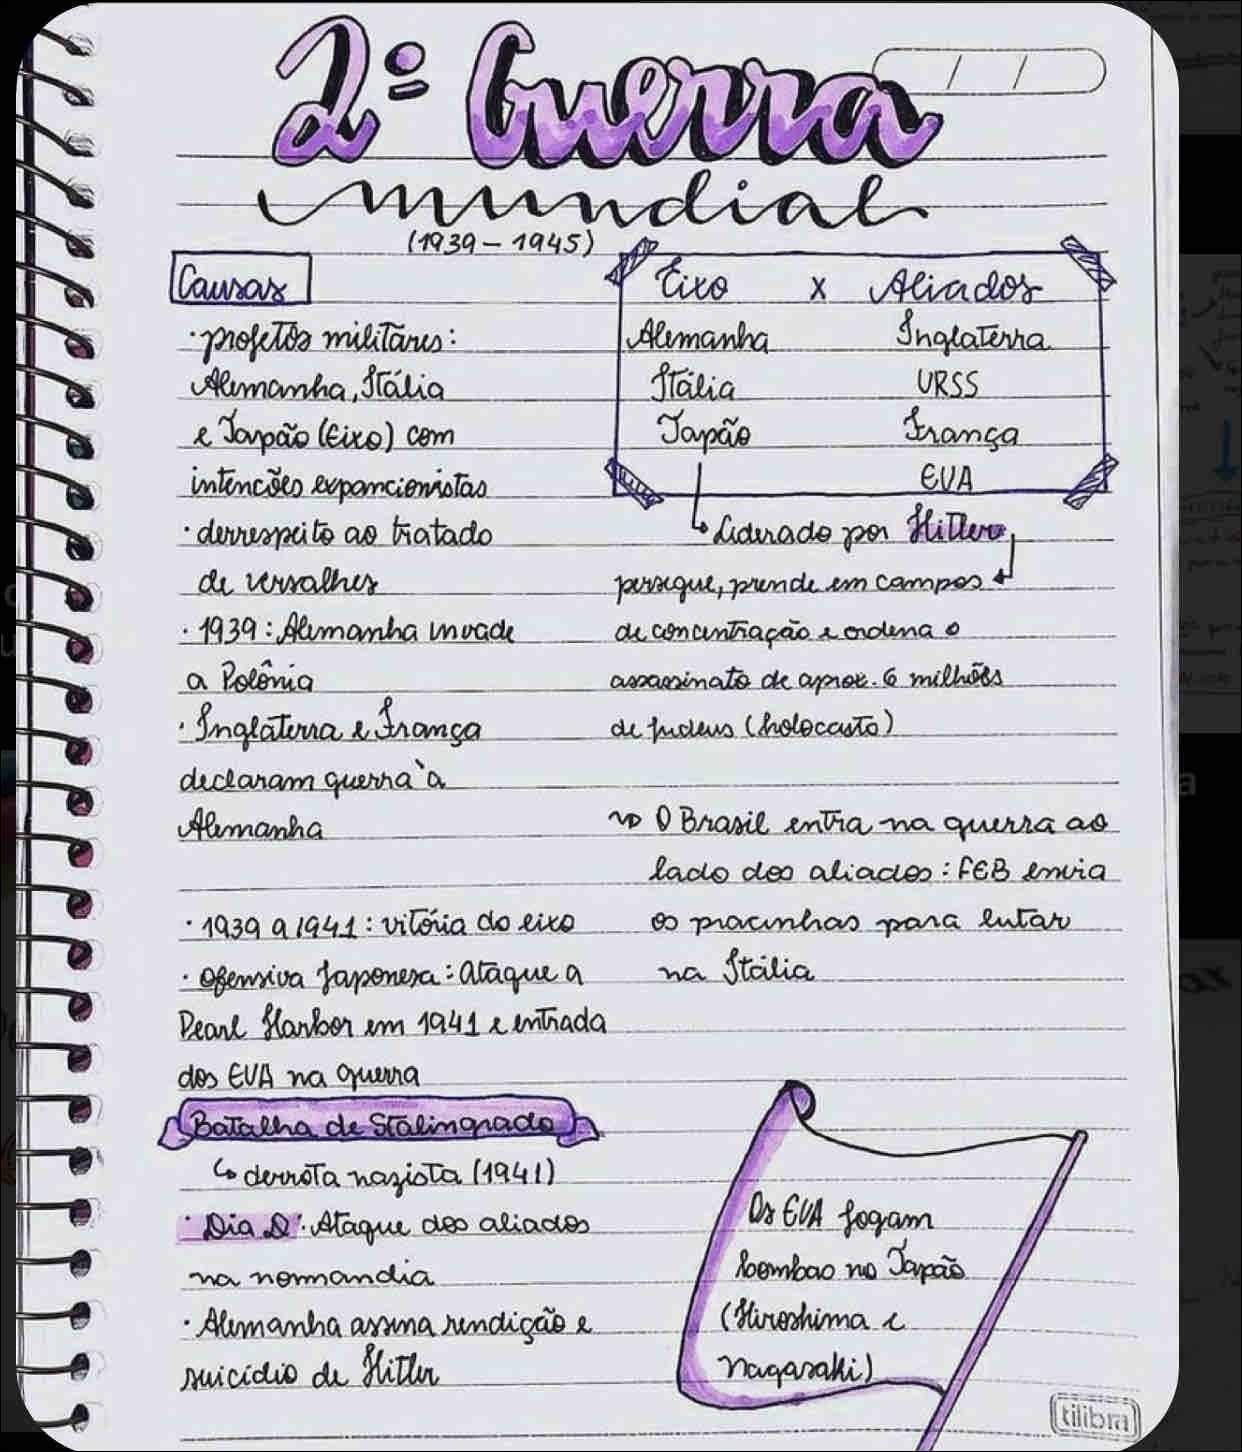 2ª Guerra
mundial
(1939 - 1945)
Causas
· projetos militares:
Alemanha, Itália
e Japão (Eixo) com
intencões expancionistas
· desrespeito ao tratado
de versalhes
· 1939: Alemanha invade
a Polônia
· Inglaterra e França
declaram guerra à
Alemanha
· 1939 a 1941: vitória do eixo
· Ofensiva Japonesa: Ataque a
Pearl Harbor em 1941 e entrada
dos EUA na guerra
Batalha de Stalingrado
↳ derrota nazista (1941)
· Dia D: Ataque dos aliados
na normandia
· Alemanha assina rendição e
suicídio de Hitler
Eixo x Aliados
Alemanha Inglaterra
Itália URSS
Japão França
EUA
↳ Liderado por Hitler
persegue, prende em campos
de concentração e ordena o
assassinato de aprox. 6 milhões
de judeus (holocausto)
~> O Brasil entra na guerra ao
lado dos aliados: FEB envia
os pracinhas para lutar
na Itália
Os EUA jogam
bombas no Japão
(Hiroshima e
Nagasaki)
tilibra